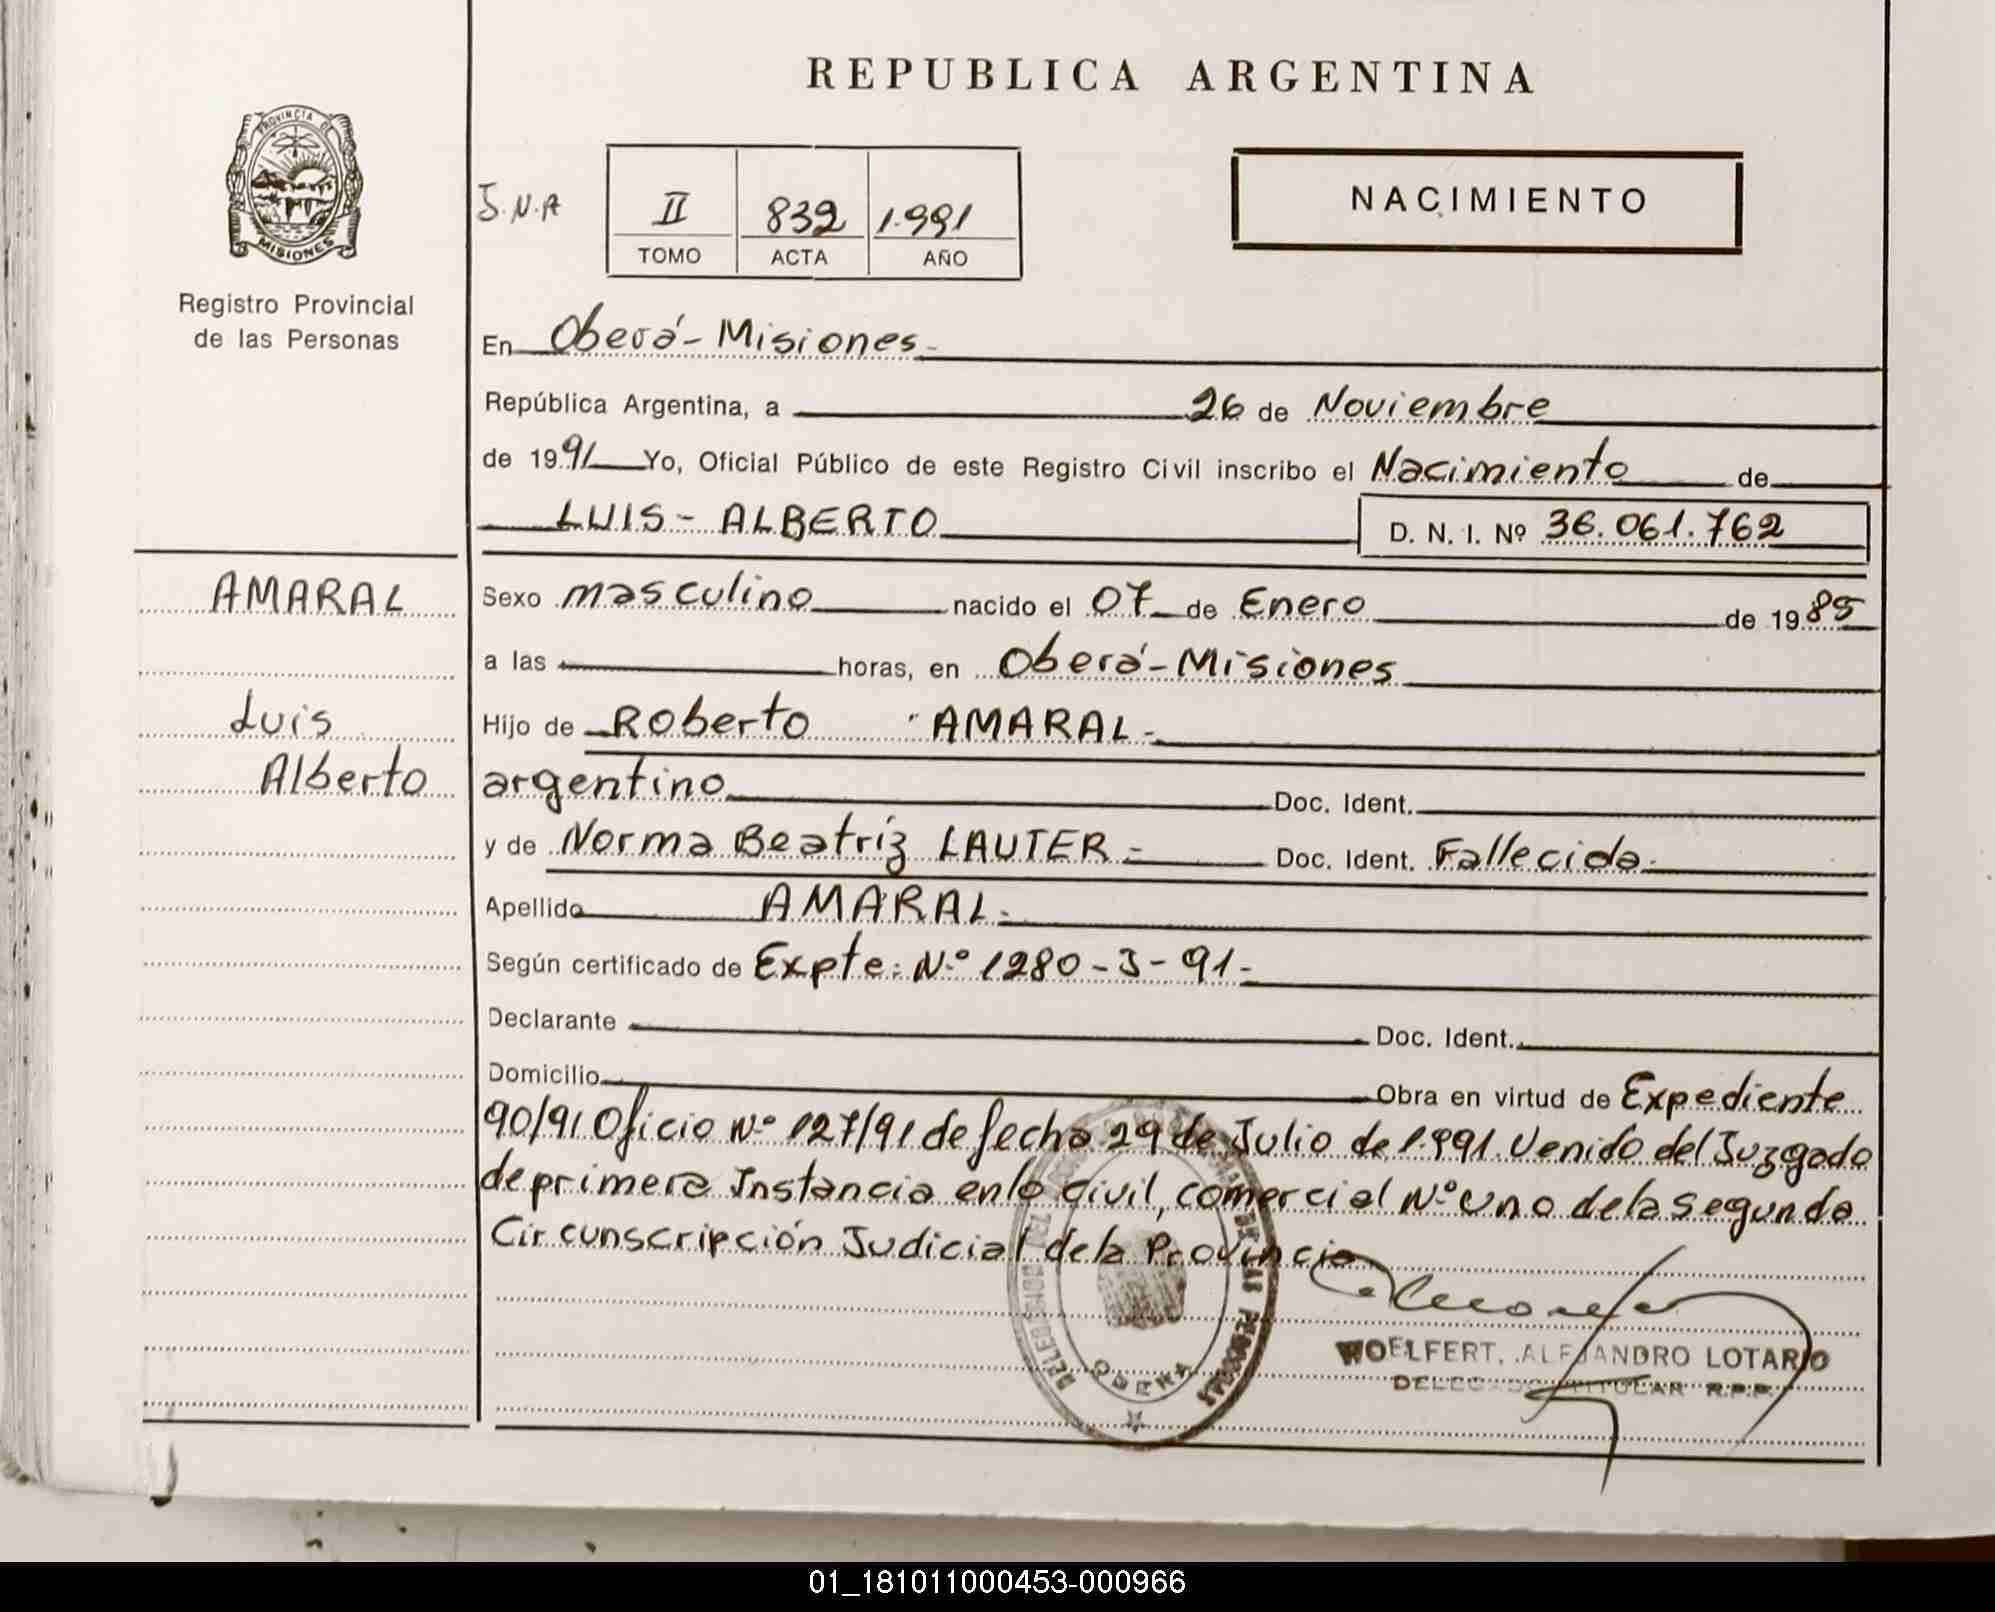 REPUBLICA ARGENTINA
PROVINCIA DE
MISIONES
Registro Provincial
de las Personas
J.N.A
II 832 1.991
TOMO ACTA AÑO
NACIMIENTO
En Oberá - Misiones -
República Argentina, a 26 de Noviembre
de 1991 Yo, Oficial Público de este Registro Civil inscribo el Nacimiento de
LUIS - ALBERTO D. N. I. Nº 36.061.762
AMARAL
Luis
Alberto
Sexo masculino nacido el 07 de Enero de 1985
a las horas, en Oberá - Misiones
Hijo de Roberto AMARAL -
argentino Doc. Ident.
y de Norma Beatríz LAUTER - Doc. Ident. Fallecida -
Apellido AMARAL -
Según certificado de Expte: Nº 1280 - J - 91 -
Declarante Doc. Ident.
Domicilio Obra en virtud de Expediente
90/91 Oficio Nº 127/91 de fecha 29 de Julio de 1.991. Venido del Juzgado
de primera Instancia en lo Civil, comercial Nº Uno de la segunda
Circunscripción Judicial de la Provincia
DE LAS PERSONAS
OBERA
WOELFERT, ALEJANDRO LOTARIO
DELEGADO TITULAR R.P.P.
01_181011000453-000966